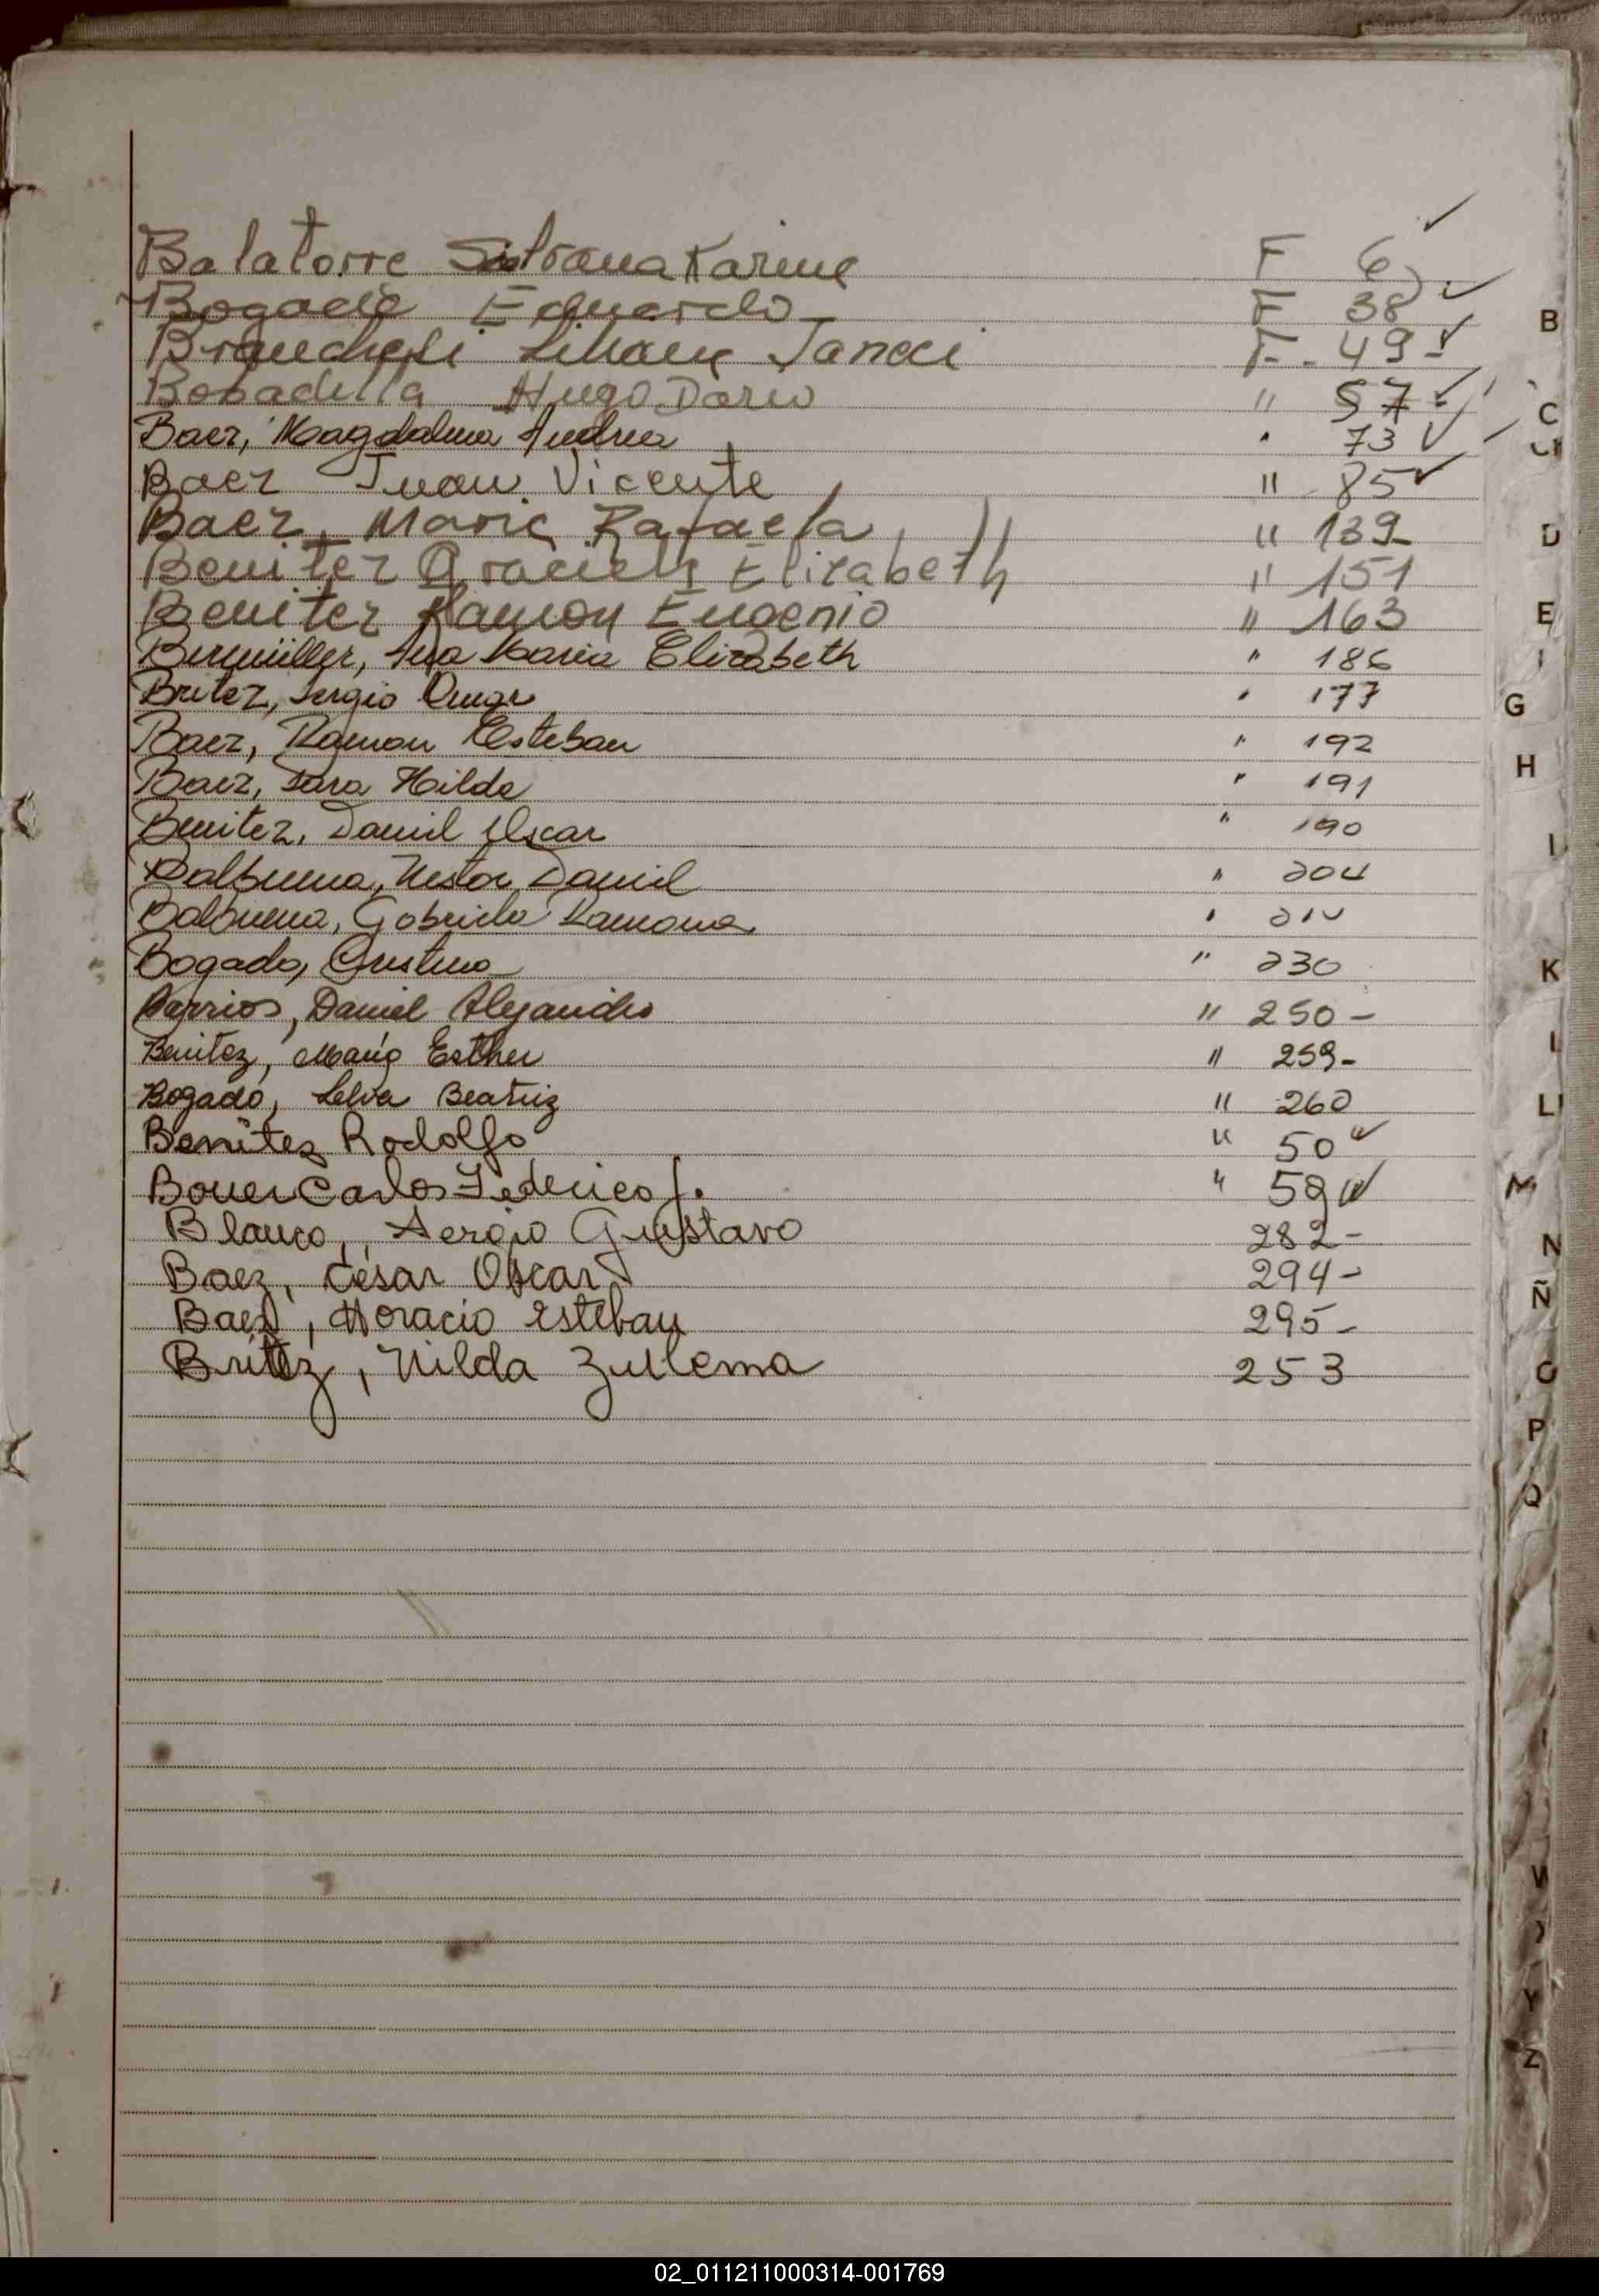 Balatorre Silvana Karine F 6
Bogado Eduardo F 38
Liliana F - 49 -
Bobadilla Hugo Dario " 57 -
Baez, Magdalena Andrea " 73
Baez Juan Vicente " 85
Baez, Maria Rafaela " 139-
Benitez Graciela Elizabeth " 151
Benitez Ramon Eugenio " 163
Ana Maria Elizabeth " 186
Britez, Sergio Omar " 177
Baez, Ramon Esteban " 192
Baez, Sara Hilda " 191
Benitez, Daniel Oscar " 190
Balbuena, Nestor Daniel " 204
Balbuena, Gabriela Ramona "
Bogado, Cristino " 230
Barrios, Daniel Alejandro " 250 -
Benitez, María Esther " 259-
Bogado, Selva Beatriz " 260
Benitez Rodolfo " 50
Bouer Carlos Federico J. " 59
Blanco, Sergio Gustavo 282-
Baez, César Oscar 294-
Baez, Horacio Esteban 295-
Britez, Nilda Zulema 253
B
C
D
E
G
H
I
K
L
Ll
M
N
Ñ
O
P
Q
W
Y
Z
02_011211000314-001769